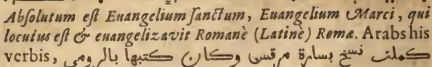 Abſolutum eſt Euangelium ſanctum, Euangelium Marci, qui
locutus eſt & euangelizavit Romanè (Latinè) Romæ. Arabs his
verbis, كملت نسخ بسارة مرقس وكان كتبها بالرومي